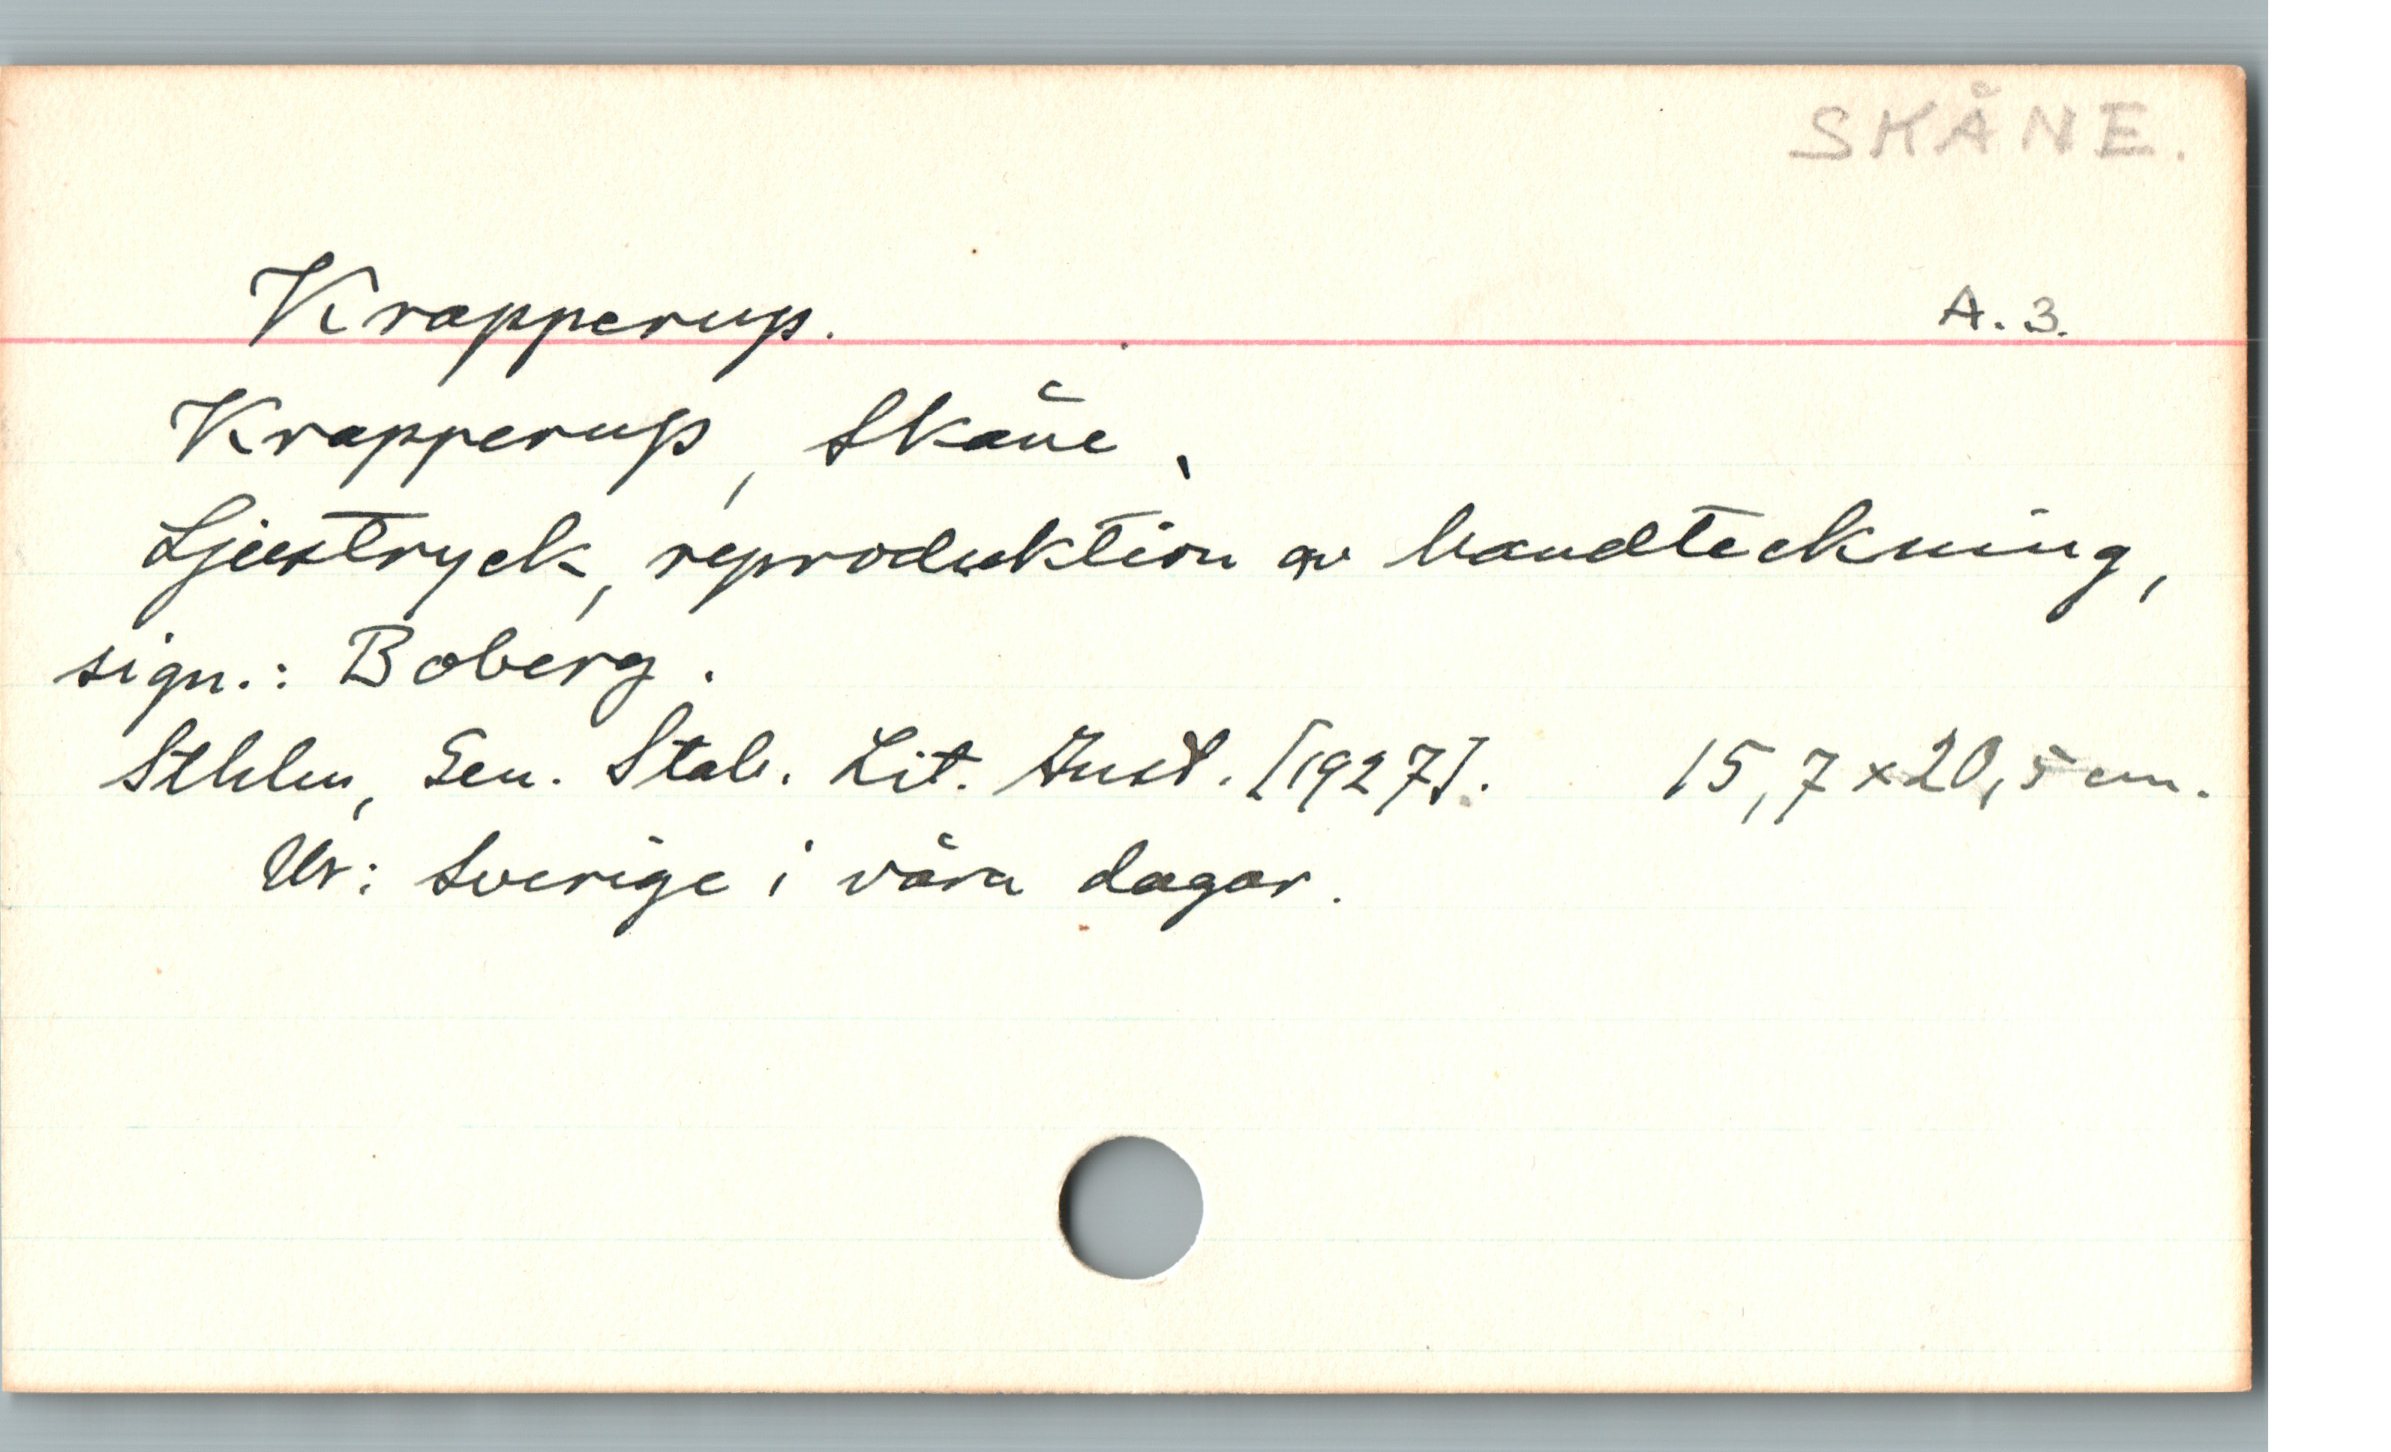 SKÅNE.
Krapperup. A. 3.
Krapperup, Skåne,
Ljustryck, reproduktion av handteckning,
sign.: Boberg.
Sthlm, Gen. Stab. Lit. Anst. [1927]. 15,7 x 20,5 cm.
Ur: Sverige i våra dagar.